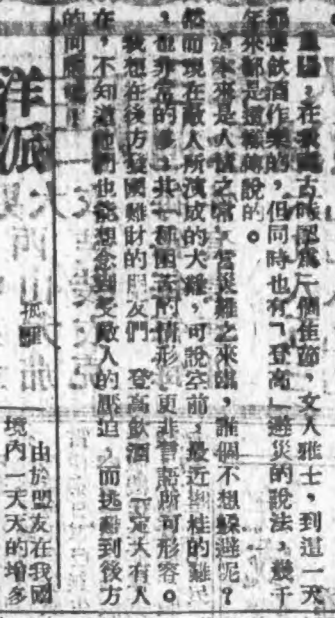 重陽，在我國古時認為一個佳節，文人雅士，到這一天
都要飲酒作樂的，但同時也有「登高」避災的說法，幾千
年來都是這樣傳說的。
這本來是人情之常，當災難之來臨，誰個不想躲避呢？
然而現在敵人所演成的大難，可說空前，最近湘桂的難民
，也非常的多，其一種困苦的情形，更非言語所可形容。
我想在後方發國難財的朋友們，登高飲酒，一定大有人
在，不知道他們也能想念到受敵人的壓迫，而逃難到後方
的同胞嗎！
洋派
孤
由於盟友在我國
境內一天天的增多